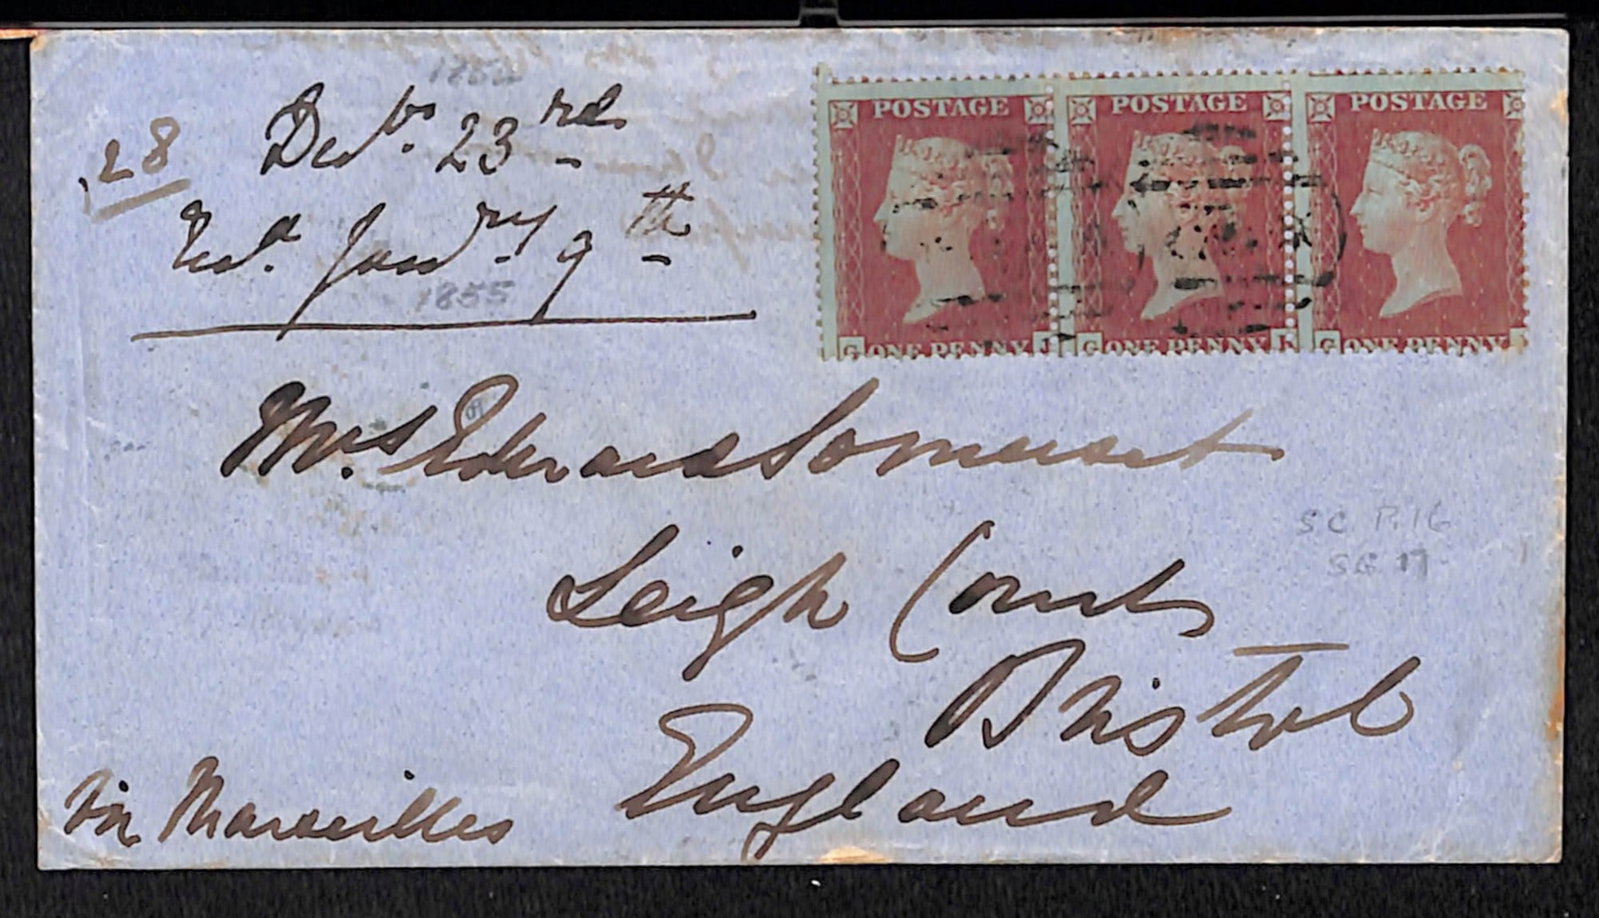 1854
28
Decbr. 23rd
Recd. Jany. 9th
1855
POSTAGE POSTAGE POSTAGE
G ONE PENNY J G ONE PENNY K G ONE PENNY
Mrs. Edward Somerset
Leigh Court
Bristol
England
via Marseilles
SC P.16
SG 17